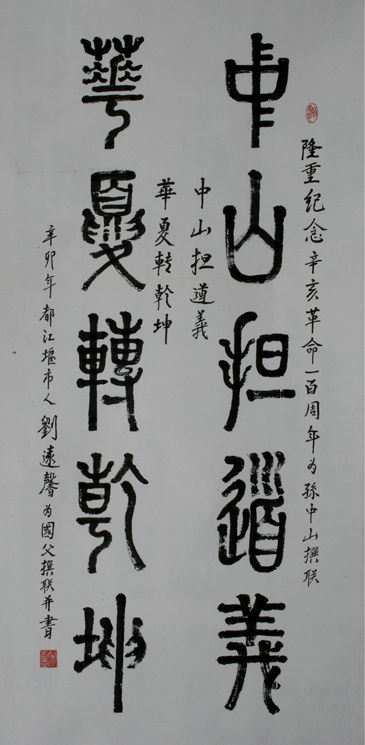 隆重纪念辛亥革命一百周年为孙中山撰联
中山担道義
中山担道義
華夏转乾坤
華夏轉乾坤
辛卯年都江堰市人劉遠馨为國父撰联并書